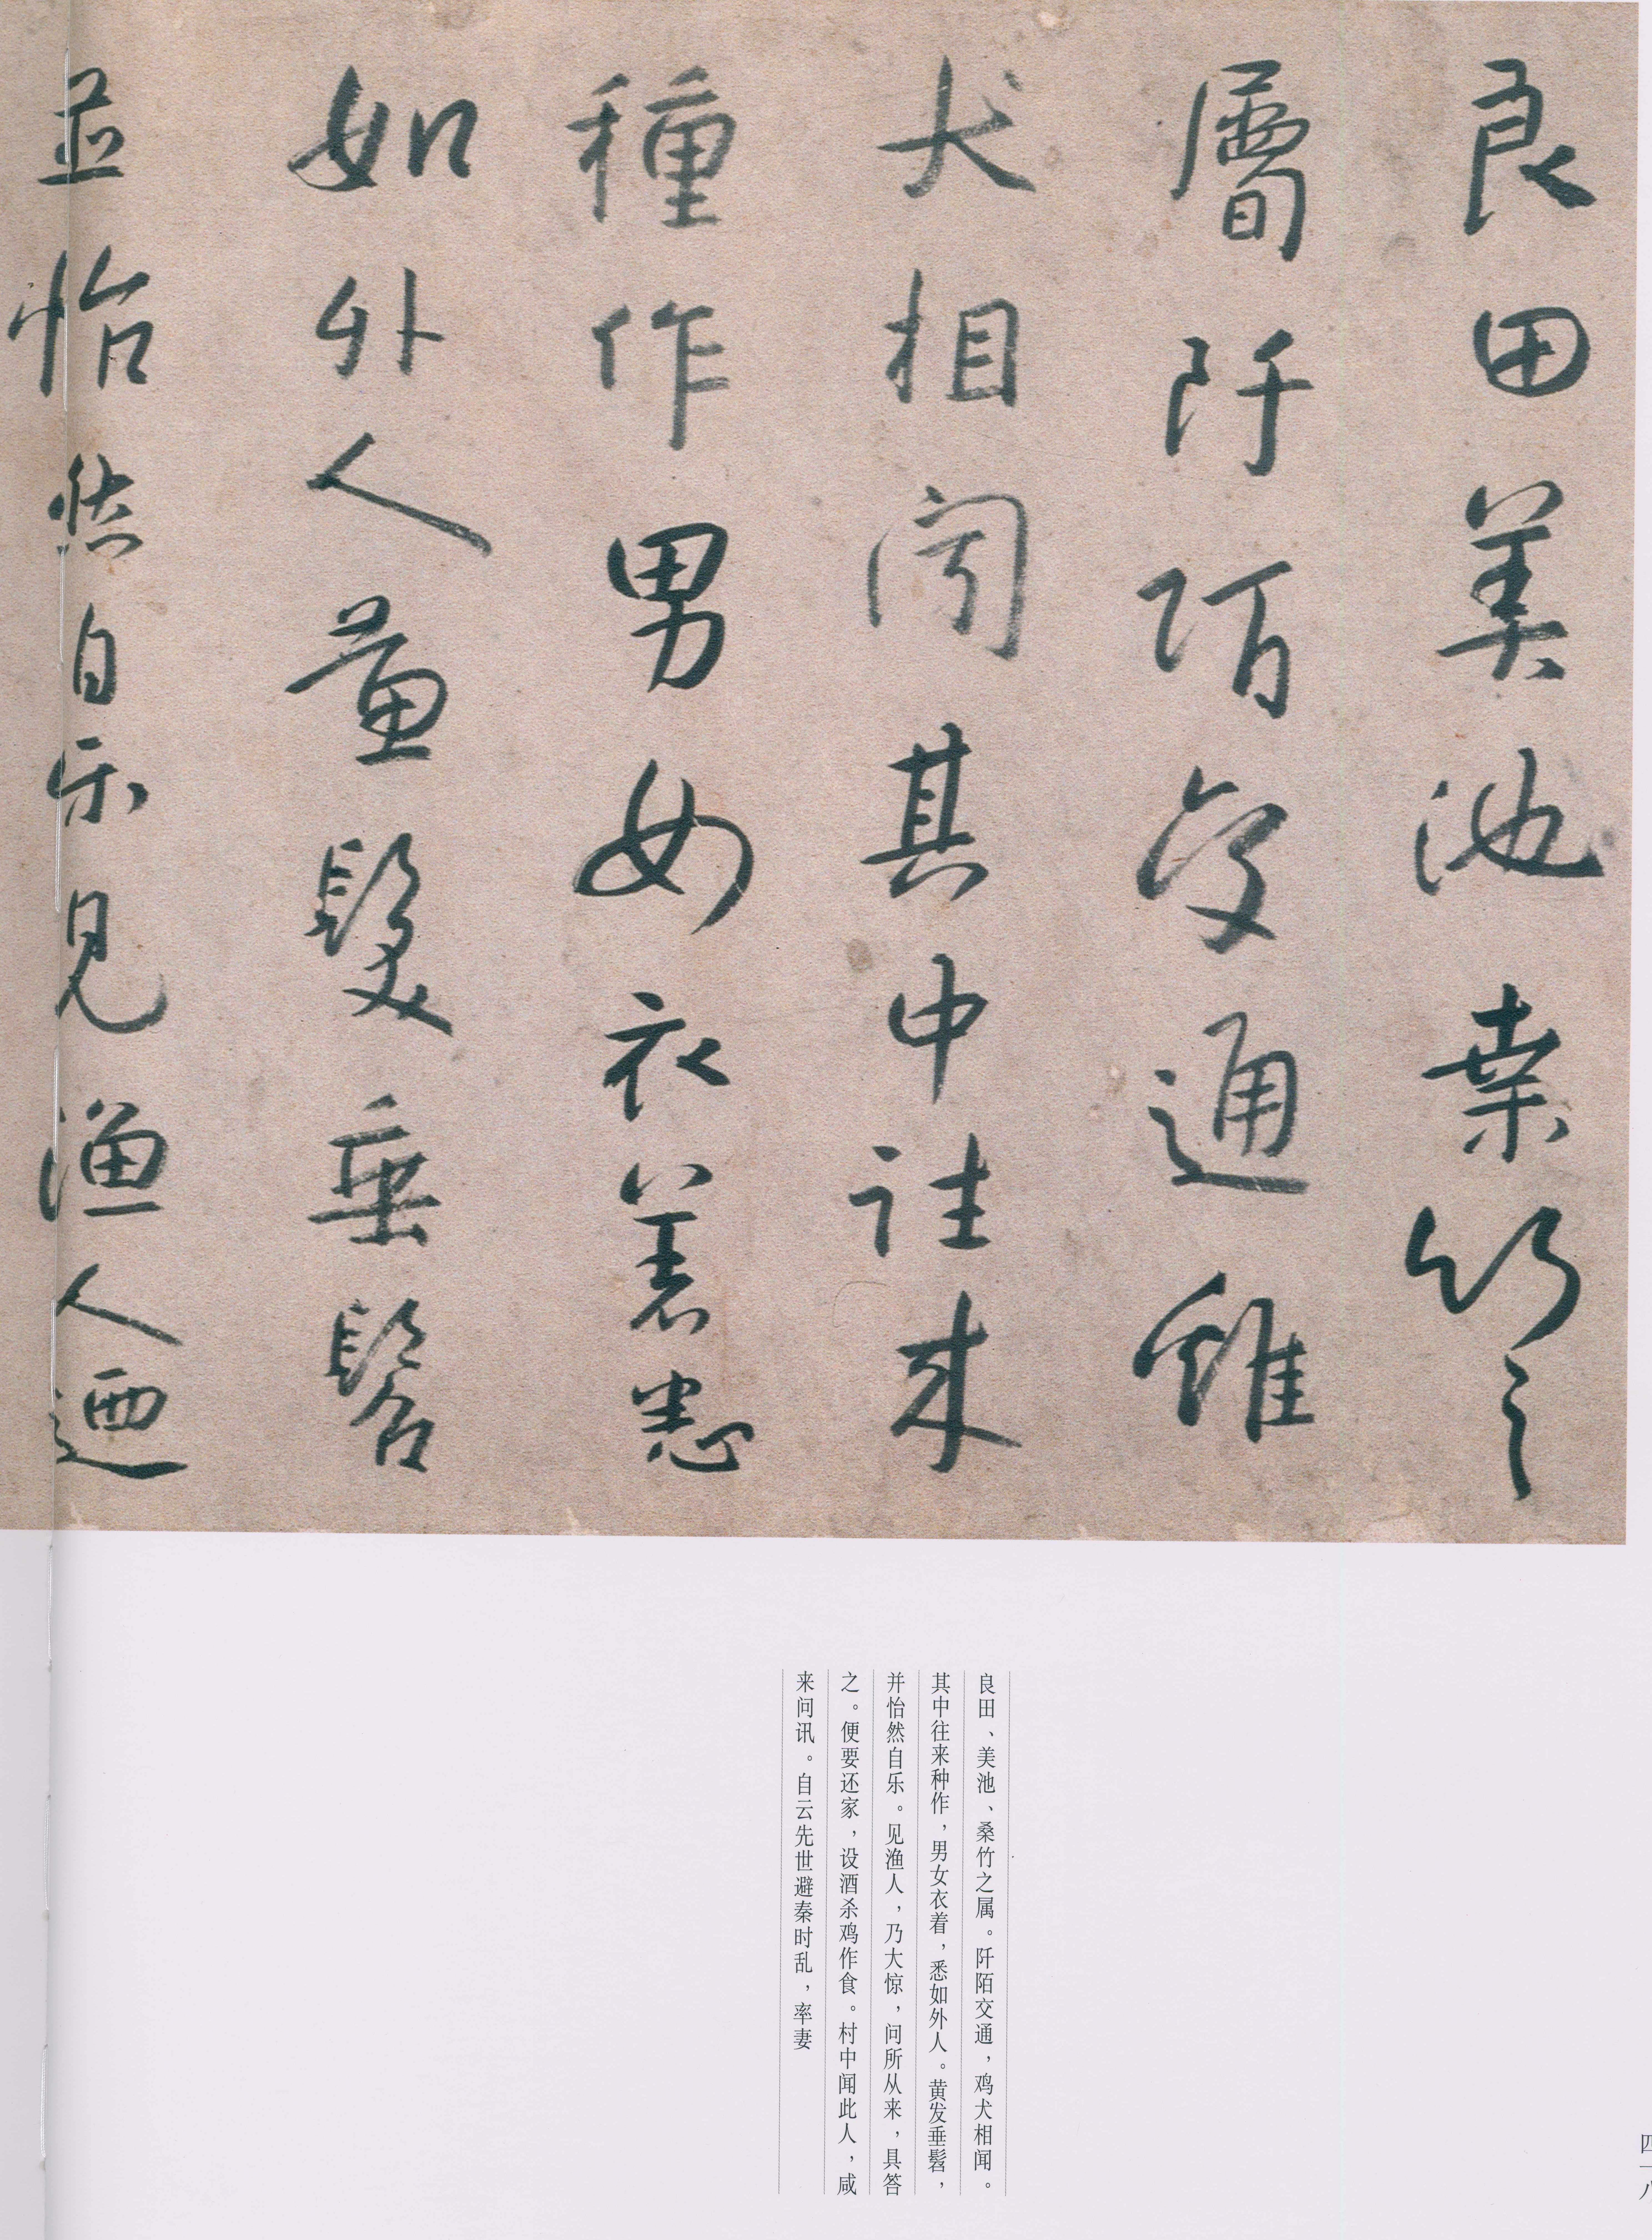 良田美池桒竹之
属阡陌交通雞
犬相闻其中往来
種作男女衣著悉
如外人黄髮垂髫
並怡然自乐見渔人迺
良田、美池、桑竹之属。阡陌交通，鸡犬相闻。
其中往来种作，男女衣着，悉如外人。黄发垂髫，
并怡然自乐。见渔人，乃大惊，问所从来，具答
之。便要还家，设酒杀鸡作食。村中闻此人，咸
来问讯。自云先世避秦时乱，率妻